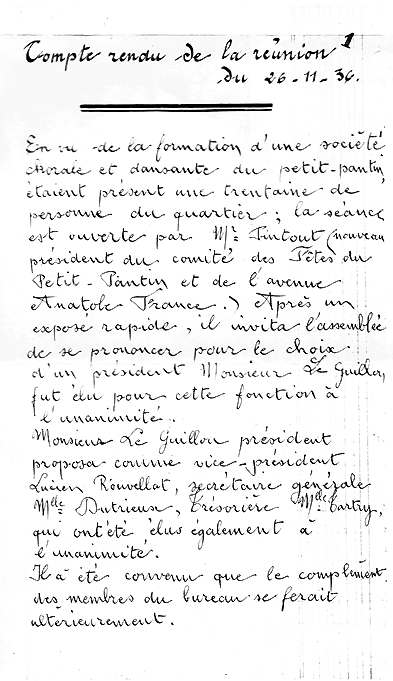 Compte rendu de la réunion 1
du 26-11-36.
En vu de la formation d'une société
chorale et dansante du petit-pantin
étaient présent une trentaine de
personne du quartier ; la séance
est ouverte par Mr. Pintout (nouveau
président du comité des Fêtes du
Petit-Pantin et de l'avenue
Anatole France.) Après un
expose rapide, il invita l'assemblée
de se prononcer pour le choix
d'un président Monsieur Le Guillou,
fut élu pour cette fonction à
l'unanimité.
Monsieur Le Guillou président
proposa comme vice-président
Lucien Rouvellat, secrétaire générale
Mlle Dutrieux, Trésorière Mlle Tartry,
qui ont été élus également à
l'unanimité.
Il a été convenu que le complément
des membres du bureau se ferait
ultérieurement.